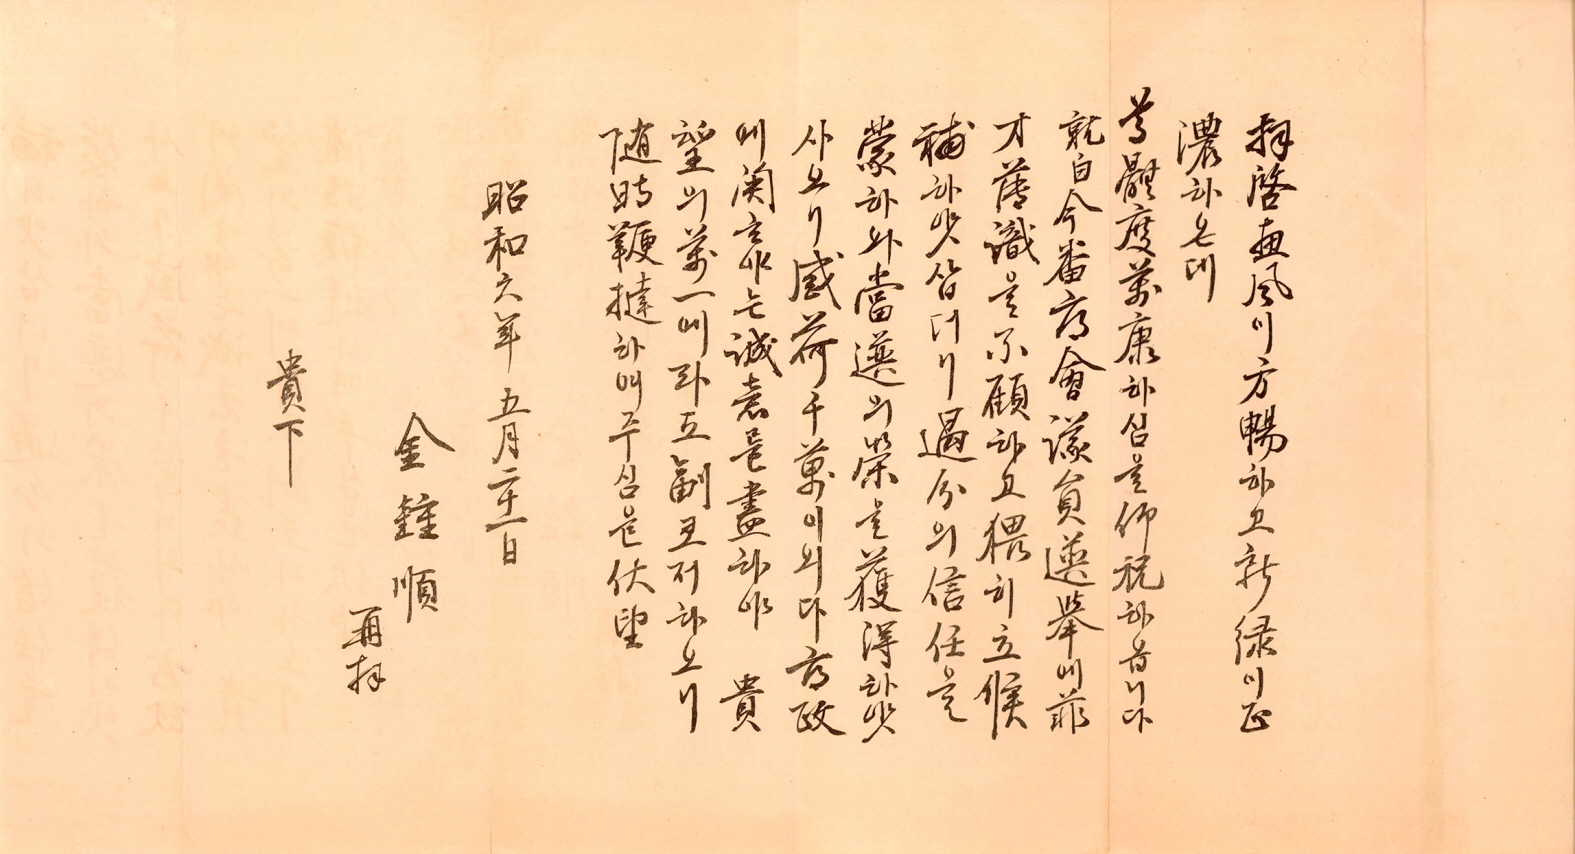 拜啓 惠風이 方暢하고 新綠이 正
濃하온대
尊體度萬康하심을 仰祝하옵니다
就白 今番 府會議員選擧에 菲
才薄識을 不顧하고 猥히 立候
補하얏삽더니 過分의 信任을
蒙하와 當選의 榮을 獲得하얏
사오니 感荷千萬이외다 府政
에 關하야는 誠意를 盡하야 貴
望의 萬一에라도 副코저 하오니
隨時鞭撻하여 주심을 伏望
昭和六年 五月二十一日
金鍾順
再拜
貴下